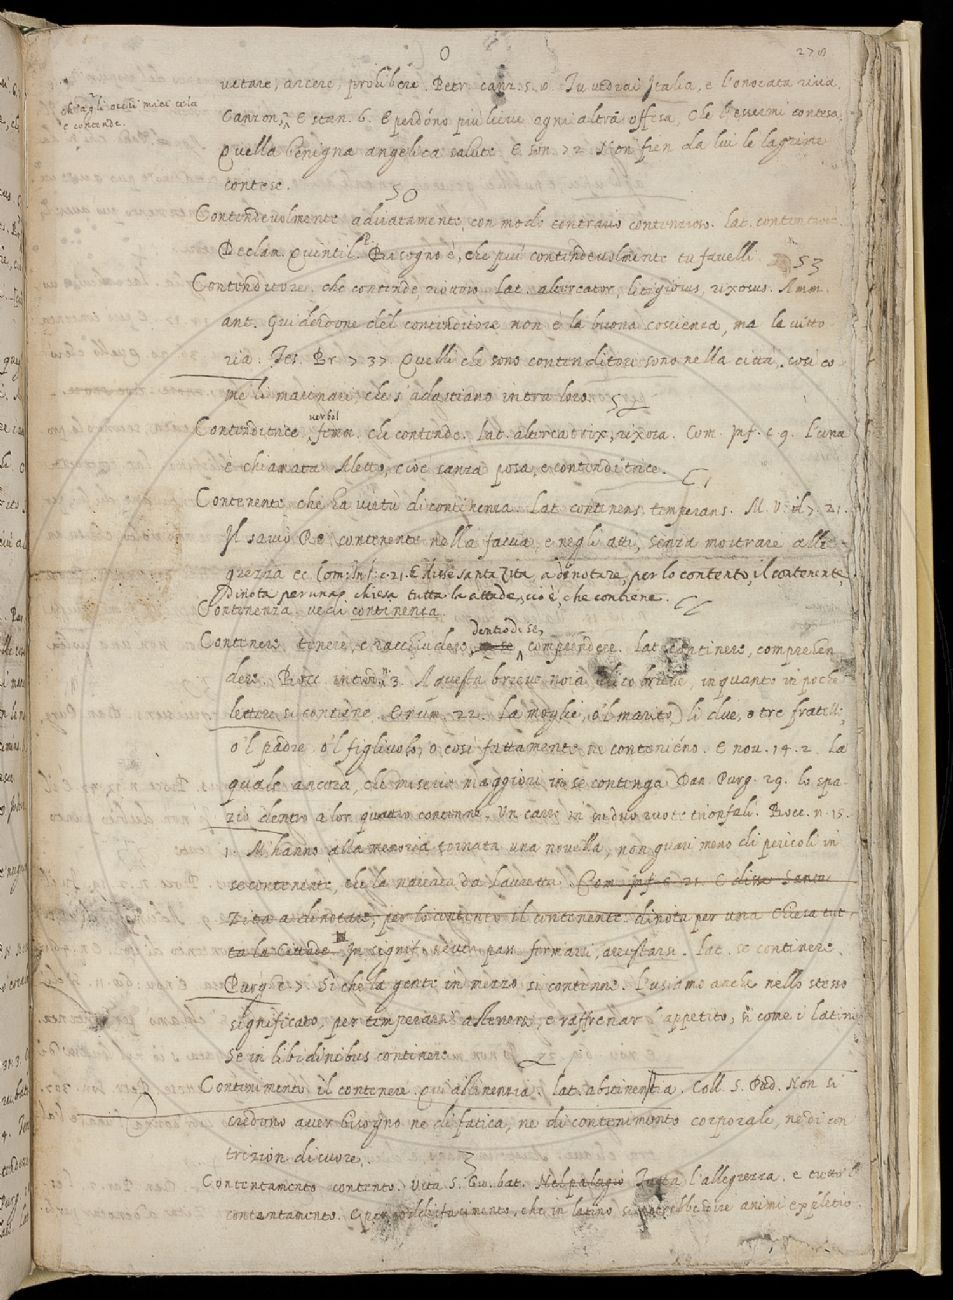 O
278
vetare, ancere, proibire. Petr. canz. 5. 6. Tu vedrai Italia, e l'onorata riva,
ch'a gli occhi miei cela
e contende.
Canzon. E stan. 6. E perdóno più lieve ogni altra offesa, Che l'essermi contesa,
Quella benigna angelica salute E son. 72. Non fien da lui le lagrime
contese.
50
Contendevolmente con modo contenzioso. lat. contentiose
Declam. Quintil. P. Bisogno è, che più contendevolmente tu favelli
53
Contenditore. che contende, lat. altercator, litigiosus, rixosus. Amm.
ant. Guiderdone del contenditore non è la buona coscienza, ma la vitto
ria. Tes. Br. 7 37 Quelli che sono contenditori sono nella città, così co
me li macinari che s'adastiano intra loro.
52
Contenditrice verbal femm. che contende. lat. altercatrix, rixosa. Com. Inf. c 9. L'una
è chiamata Aletto, cioè sanza posa, e contenditrice.
Contenente che ha virtù di continenza. lat. continens. temperans. M. V. 21.
Il savio Re contenente nella faccia, e negli atti, senza mostrare alle
grezza ec Com. Inf. c. 21. E disse santa Zita, a dinotare, per lo contento, il contenente,
dinota per una chiesa tutta la cittade, cioè, che contiene.
Contenenza vedi continenza.
Contenere tenere, e racchiudere, dentro di se, comprendere. lat. continere, comprehen
dere. Bocc. introd. 3. A questa breve noia, dico brieve, in quanto in poche
lettere si contiene. E num. 22. La moglie, o 'l marito, li due, o tre fratelli,
o 'l padre o 'l figliuolo, o così fattamente ne contenieno. E nov. 14. 2. La
quale ancora, che miserie maggiori in se contenga Dan. Purg. 29. lo spa-
zio dentro a lor quattro contenne. Un carro in in duo ruote trionfali. Bocc. n. 15.
1. M'hanno alla memoria tornata una novella, non guari meno di pericoli in
se contenente, che la narrata da Lauretta. Com. Inf. c 21. E disse Santa
Zita a dinotare, per lo contento il contenente. dinota per una Chiesa tut
ta la Cittade. In signif. neutr. pass. fermarsi, arrestarsi. lat. se continere.
Purg. c 7 Sì che la gente in mezzo si contenne. L'usiamo anche nello stesso
significato, per temperarsi astenersi, e raffrenar l'appetito, sì come i latini
se in libidinibus continere.
Contenimento il contenere. qui astinenzia. lat. abstinentia. Coll. S. Pad. Non si
credono aver bisogno ne di fatica, ne di contenimento corporale, ne di con
trizion di cuore.
Contentamento contento. Vita S. Gio. bat. Nel palagio Tutta l'allegrezza, e tutto 'l
contentamento. E per sodisfacimento, che in latino si potrebbe dire animi expletio